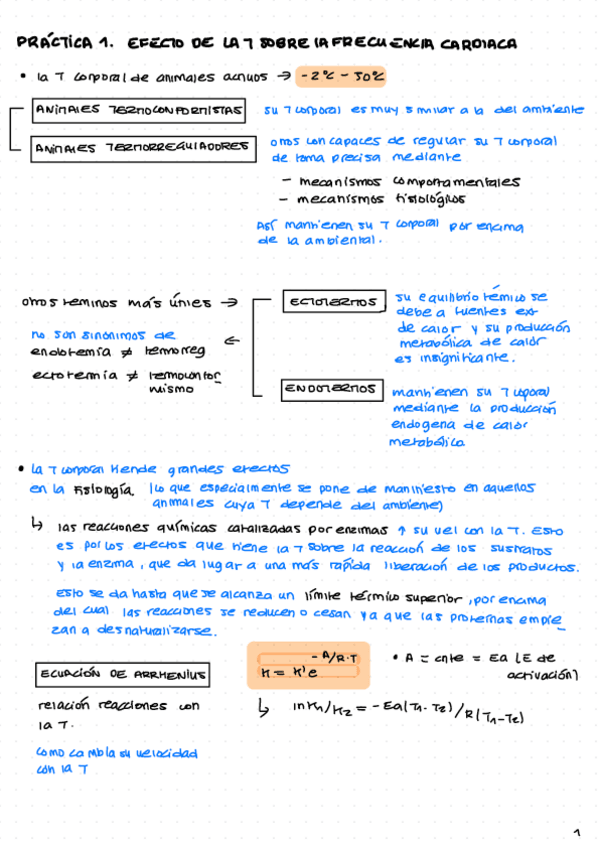 PRÁCTICA 1. EFECTO DE LA T SOBRE LA FRECUENCIA CARDIACA
• la T corporal de animales activos → -2°C - 50°C
ANIMALES TERMOCONFORMISTAS su T corporal es muy similar a la del ambiente
ANIMALES TERMORREGULADORES otros con capaces de regular su T corporal
de forma precisa mediante
- mecanismos comportamentales
- mecanismos fisiológicos
Así mantienen su T corporal por encima
de la ambiental.
otros terminos más útiles →
ECTOTERMOS su equilibrio térmico se
debe a fuentes ext
de calor y su producción
metabólica de calor
es insignificante.
no son sinónimos de ←
endotermia ≠ termorreg
ectotermia ≠ termoconfor_
mismo
ENDOTERMOS mantienen su T corporal
mediante la producción
endogena de calor
metabólico
• la T corporal tiende grandes efectos
en la fisiología. (lo que especialmente se pone de manifiesto en aquellos
animales cuya T depende del ambiente)
↳ las reacciones químicas catalizadas por enzimas ↑ su vel con la T. Esto
es por los efectos que tiene la T sobre la reacción de los sustratos
y la enzima, que da lugar a una más rapida liberación de los productos.
Esto se da hasta que se alcanza un límite térmico superior, por encima
del cual las reacciones se reducen o cesan ya que las proteínas empie_
zan a desnaturalizarse.
ECUACIÓN DE ARRHENIUS
relación reacciones con
la T.
como cambia su velocidad
con la T
K = K'e -A/R·T
• A = cnte = Ea (E de
activación)
↳ ln K1/K2 = -Ea(T1-T2)/R(T1-T2)
1